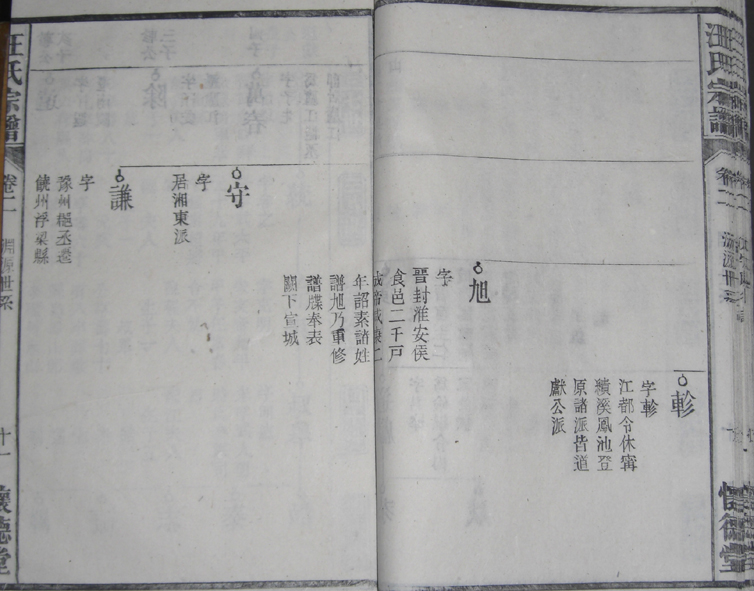 汪氏宗譜
卷二
懷德堂
軫
字軫
江都令休寧
績溪鳳池登
原諸派皆道
獻公派
旭
字
晉封淮安侯
食邑二千戸
年詔索諸姓
譜旭乃重修
譜牒奉表
關下宣城
守
字
居湘東派
謙
字
豫州
饒州浮梁縣
汪氏宗譜
卷二
淵源世系
十一
懷德堂